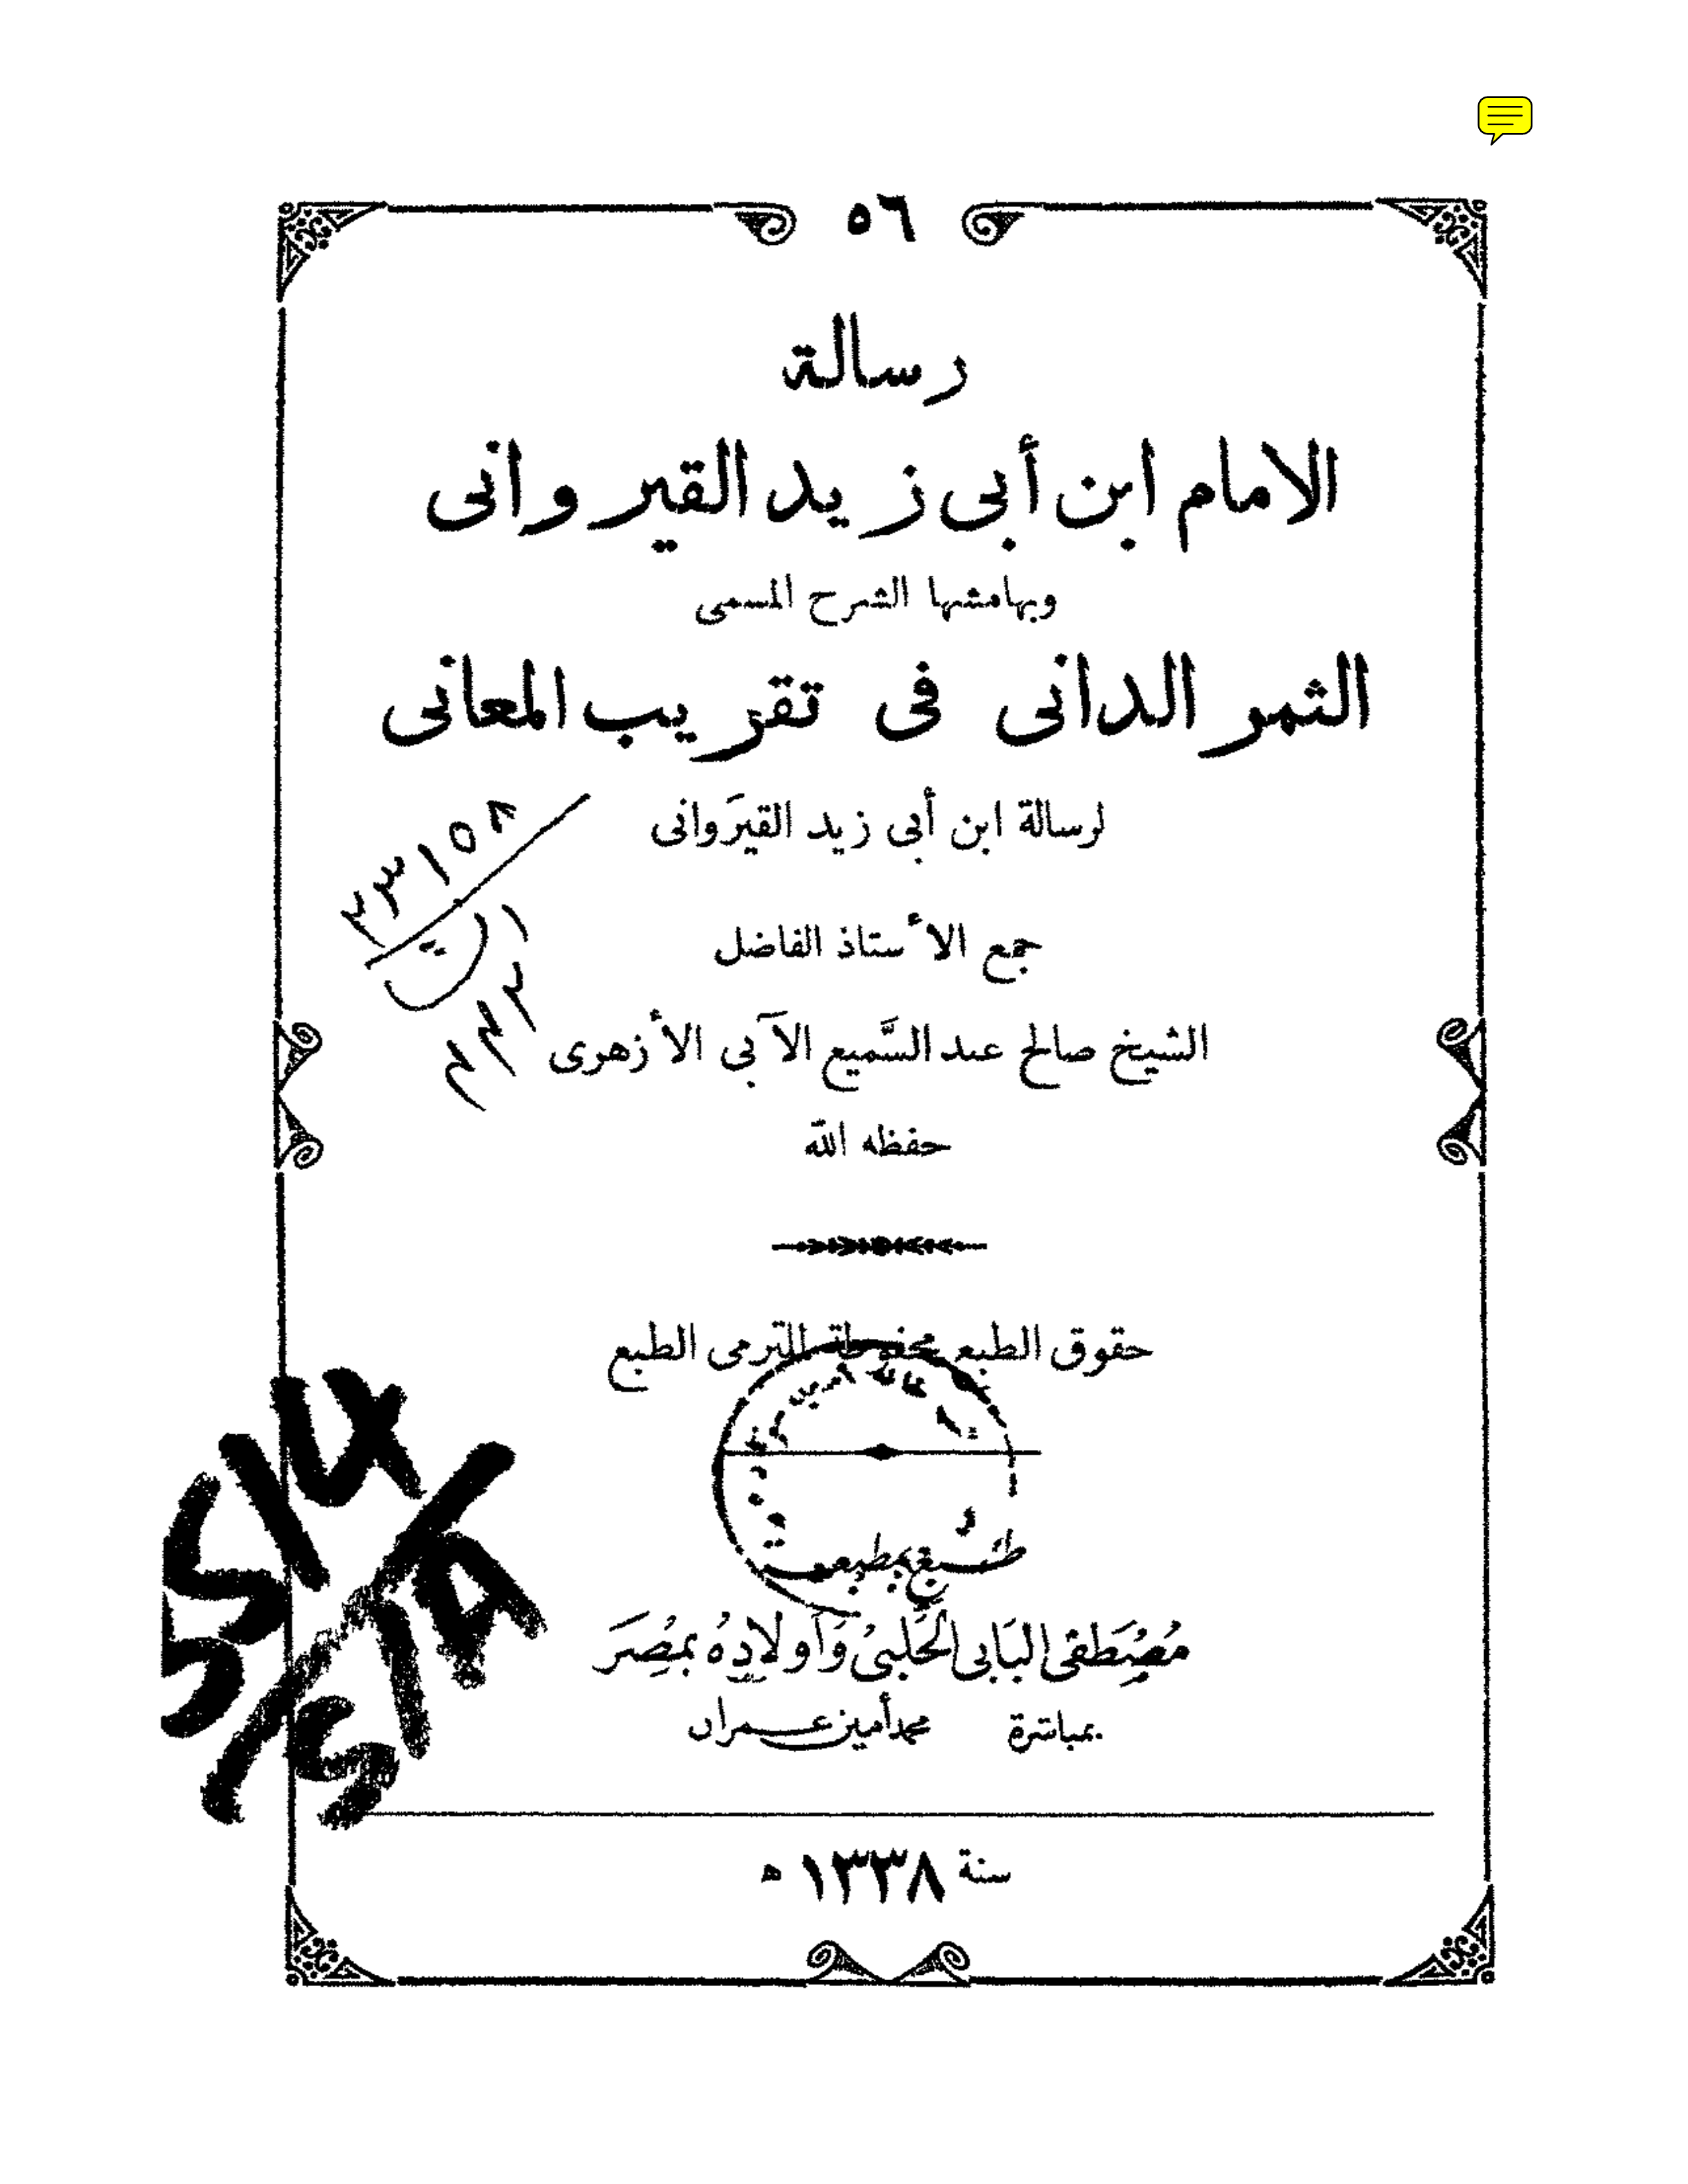 ٥٦
رسالة
الامام ابن أبى زيد القيروانى
وبهامشها الشرح المسمى
الثمر الدانى فى تقريب المعانى
لرسالة ابن أبى زيد القيرَوانى
جمع الأستاذ الفاضل
الشيخ صالح عبد السَّميع الآبي الأزهرى
حفظه الله
٢٣١٥٨
حقوق الطبع محفوظة للتزمى الطبع
طبع بمطبعة
مُصْطَفى البَابى الحَلَبىْ وَأولادُه بمصِرَ
بمباشرة محمد أمين عمران
سنة ١٣٣٨ ه